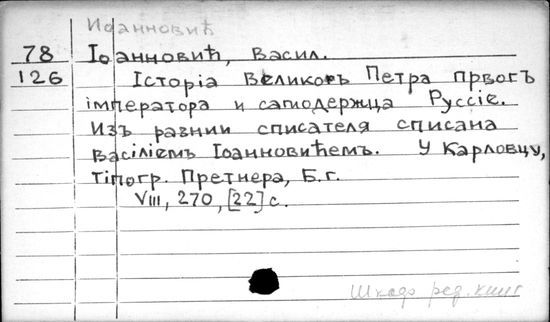 Иоанновић
78 Іоанновић, Васил.
126 Історіа Великогъ Петра првогъ
імператора и самодержца Руссіе.
Изъ разнии списателя списана
Васіліемъ Іоанновићемъ. У Карловцу,
тіпогр. Претнера, Б.г.
VIII, 270, [22] с.
Шкаф ред. книг